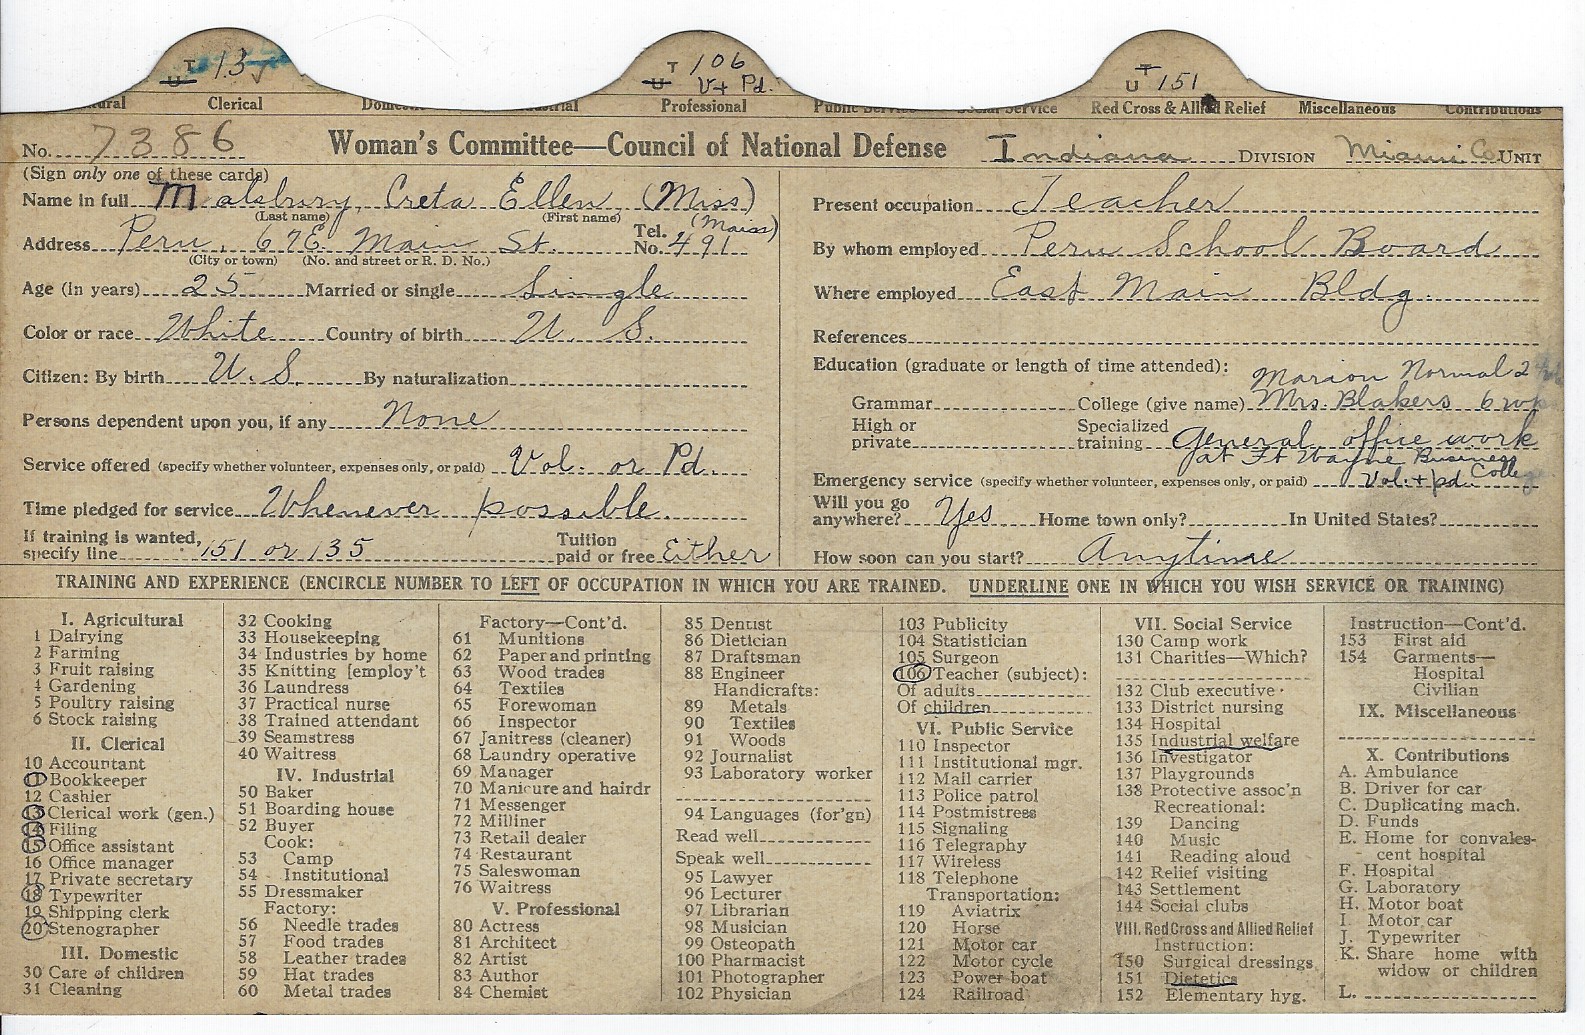 T U 13 ✓ T U 106 V + Pd. T U 151
ural Clerical Domes trial Professional Public Service Social Service Red Cross & Allied Relief Miscellaneous Contributions
No. 7386 Woman's Committee—Council of National Defense Indiana DIVISION Miami Co. UNIT
(Sign only one of these cards)
Name in full Malsbury, Creta Ellen (Miss)
(Last name) (First name) (Maiss)
Address Peru, 67 E. Main St. Tel. No. 491
(City or town) (No. and street or R. D. No.)
Age (in years) 25 Married or single Single
Color or race White Country of birth U. S.
Citizen: By birth U. S. By naturalization
Persons dependent upon you, if any None
Service offered (specify whether volunteer, expenses only, or paid) Vol. or Pd.
Time pledged for service Whenever possible.
If training is wanted, specify line 151 or 135 Tuition paid or free Either
Present occupation Teacher
By whom employed Peru School Board
Where employed East Main Bldg.
References
Education (graduate or length of time attended):
Marion Normal 2
Grammar College (give name) Mrs. Blakers 6 wk
High or private Specialized training General office work
at Ft Wayne Business College
Emergency service (specify whether volunteer, expenses only, or paid) Vol. + pd.
Will you go anywhere? Yes Home town only? In United States?
How soon can you start? Anytime
TRAINING AND EXPERIENCE (ENCIRCLE NUMBER TO LEFT OF OCCUPATION IN WHICH YOU ARE TRAINED. UNDERLINE ONE IN WHICH YOU WISH SERVICE OR TRAINING)
I. Agricultural
1 Dairying
2 Farming
3 Fruit raising
4 Gardening
5 Poultry raising
6 Stock raising
II. Clerical
10 Accountant
11 Bookkeeper
12 Cashier
13 Clerical work (gen.)
14 Filing
15 Office assistant
16 Office manager
17 Private secretary
18 Typewriter
19 Shipping clerk
20 Stenographer
III. Domestic
30 Care of children
31 Cleaning
32 Cooking
33 Housekeeping
34 Industries by home
35 Knitting [employ't
36 Laundress
37 Practical nurse
38 Trained attendant
39 Seamstress
40 Waitress
IV. Industrial
50 Baker
51 Boarding house
52 Buyer
Cook:
53 Camp
54 Institutional
55 Dressmaker
Factory:
56 Needle trades
57 Food trades
58 Leather trades
59 Hat trades
60 Metal trades
Factory—Cont'd.
61 Munitions
62 Paper and printing
63 Wood trades
64 Textiles
65 Forewoman
66 Inspector
67 Janitress (cleaner)
68 Laundry operative
69 Manager
70 Manicure and hairdr
71 Messenger
72 Milliner
73 Retail dealer
74 Restaurant
75 Saleswoman
76 Waitress
V. Professional
80 Actress
81 Architect
82 Artist
83 Author
84 Chemist
85 Dentist
86 Dietician
87 Draftsman
88 Engineer
Handicrafts:
89 Metals
90 Textiles
91 Woods
92 Journalist
93 Laboratory worker
94 Languages (for'gn)
Read well
Speak well
95 Lawyer
96 Lecturer
97 Librarian
98 Musician
99 Osteopath
100 Pharmacist
101 Photographer
102 Physician
103 Publicity
104 Statistician
105 Surgeon
106 Teacher (subject):
Of adults
Of children
VI. Public Service
110 Inspector
111 Institutional mgr.
112 Mail carrier
113 Police patrol
114 Postmistress
115 Signaling
116 Telegraphy
117 Wireless
118 Telephone
Transportation:
119 Aviatrix
120 Horse
121 Motor car
122 Motor cycle
123 Power boat
124 Railroad
VII. Social Service
130 Camp work
131 Charities—Which?
132 Club executive
133 District nursing
134 Hospital
135 Industrial welfare
136 Investigator
137 Playgrounds
138 Protective assoc'n
Recreational:
139 Dancing
140 Music
141 Reading aloud
142 Relief visiting
143 Settlement
144 Social clubs
VIII. Red Cross and Allied Relief
Instruction:
150 Surgical dressings
151 Dietetics
152 Elementary hyg.
Instruction—Cont'd.
153 First aid
154 Garments—
Hospital
Civilian
IX. Miscellaneous
X. Contributions
A. Ambulance
B. Driver for car
C. Duplicating mach.
D. Funds
E. Home for convales-
cent hospital
F. Hospital
G. Laboratory
H. Motor boat
I. Motor car
J. Typewriter
K. Share home with
widow or children
L.